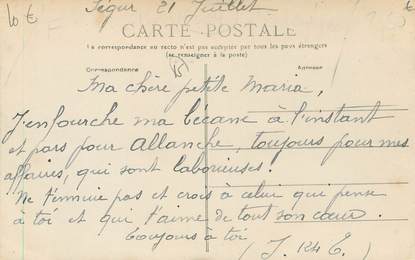 10 €
Ségur 21 Juillet
€
CARTE POSTALE
La correspondance au recto n'est pas acceptée par tous les pays étrangers
(se renseigner à la poste)
Correspondance
Adresse
(15)
Ma chère petite Maria,
J'enfourche ma bécane à l'instant
et pars pour Allanche, toujours pour mes
affaires, qui sont laborieuses.
Ne t'ennuie pas et crois à celui qui pense
à toi et qui t'aime de tout son cœur.
Toujours à toi